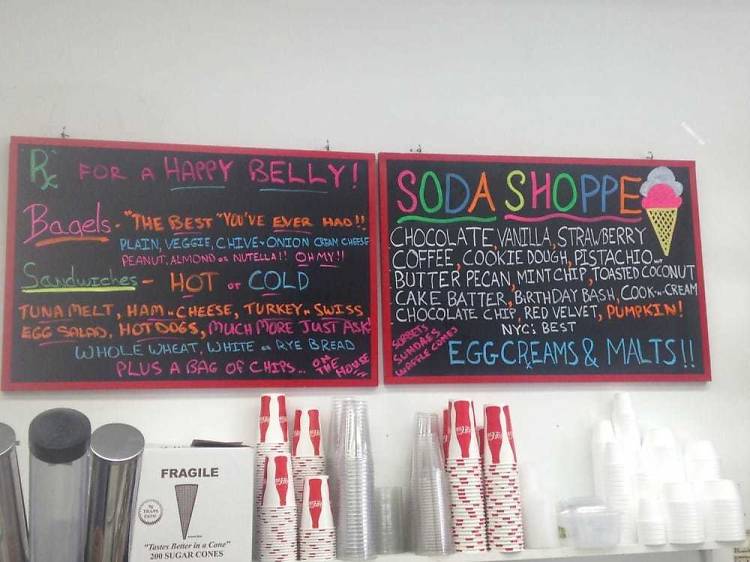 Rx FOR A HAPPY BELLY!
Bagels - "THE BEST" YOU'VE EVER HAD!!
PLAIN, VEGGIE, CHIVE + ONION CREAM CHEESE
PEANUT, ALMOND OR NUTELLA!! OH MY!!
Sandwiches - HOT or COLD
TUNA MELT, HAM + CHEESE, TURKEY + SWISS
EGG SALAD, HOT DOGS, MUCH MORE JUST ASK!
WHOLE WHEAT, WHITE OR RYE BREAD
PLUS A BAG OF CHIPS... ON THE HOUSE
SODA SHOPPE
CHOCOLATE, VANILLA, STRAWBERRY
COFFEE, COOKIE DOUGH, PISTACHIO
BUTTER PECAN, MINT CHIP, TOASTED COCONUT
CAKE BATTER, BIRTHDAY BASH, COOK-N-CREAM
CHOCOLATE CHIP, RED VELVET, PUMPKIN!
SORBETS
SUNDAES
WAFFLE CONES
NYC's BEST
EGG CREAMS & MALTS!!
FRAGILE
"Tastes Better in a Cone"
200 SUGAR CONES